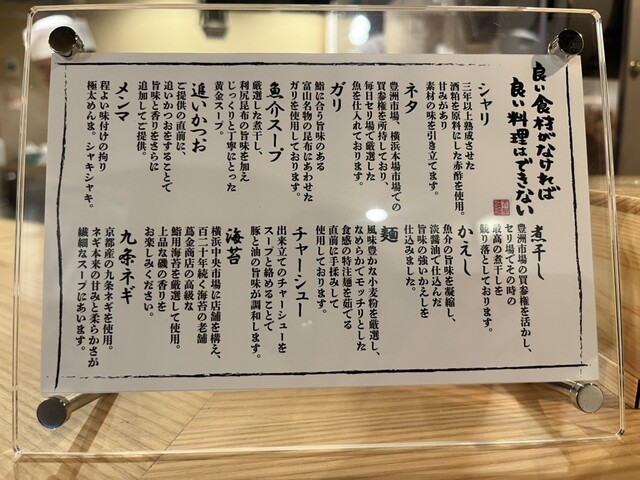 良い食材がなければ
良い料理はできない
シャリ
三年以上熟成させた
酒粕を原料にした赤酢を使用。
甘みがあり
素材の味を引き立てます。
ネタ
豊洲市場、横浜本場市場での
買参権を所持しており、
毎日セリ場で厳選した
魚を仕入れております。
ガリ
鮨に合う旨味のある
富山名物の昆布にあわせた
ガリを使用しております。
魚介スープ
厳選した煮干し、
利尻昆布の旨味を加え
じっくりと丁寧にとった
黄金スープ。
追いかつお
ご提供の直前に、
追いかつおをすることで
旨味と香りをさらに
追加してご提供。
メンマ
程よい味付けの拘り
極太めんま。シャキシャキ。
煮干し
豊洲市場の買参権を活かし、
セリ場でその時の
最高の煮干しを
競り落としております。
かえし
魚介の旨味を凝縮し、
淡醤油で仕込んだ
旨味の強いかえしを
仕込みました。
麺
風味豊かな小麦粉を厳選し、
なめらかでモッチリとした
食感の特注麺を茹でる
直前に手揉みして
使用しております。
チャーシュー
出来立てのチャーシューを
スープと絡めることで
豚と油の旨味が調和します。
海苔
横浜中央市場に店舗を構え、
百二十年続く海苔の老舗
蔦金商店の高級な
鮨用海苔を厳選して使用。
上品な磯の香りを
お楽しみください。
九条ネギ
京都産の九条ネギを使用。
ネギ本来の甘みと柔らかさが
繊細なスープにあいます。